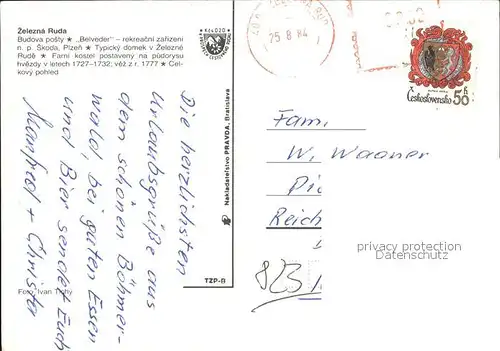 Železná Ruda
Budova pošty ★ „Belveder" – rekreační zařízení
n. p. Škoda, Plzeň ★ Typický domek v Železné
Rudě ★ Farní kostel postavený na půdorysu
hvězdy v letech 1727–1732; věž z r. 1777 ★ Cel-
kový pohled
Die herzlichsten
Urlaubsgrüße aus
dem schönen Böhmer-
wald, bei guten Essen
und Bier sendet Euch
Manfred + Christa
Foto Ivan Tichý
Nakladatelství PRAVDA, Bratislava
TZP-B
25.8.84
Československo 50 h
Fam.
W. Wagner
Reich
823
privacy protection
delcampe.net